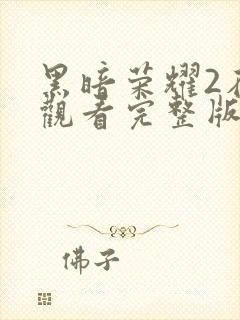 黑暗荣耀2
觀看完整版
佛子